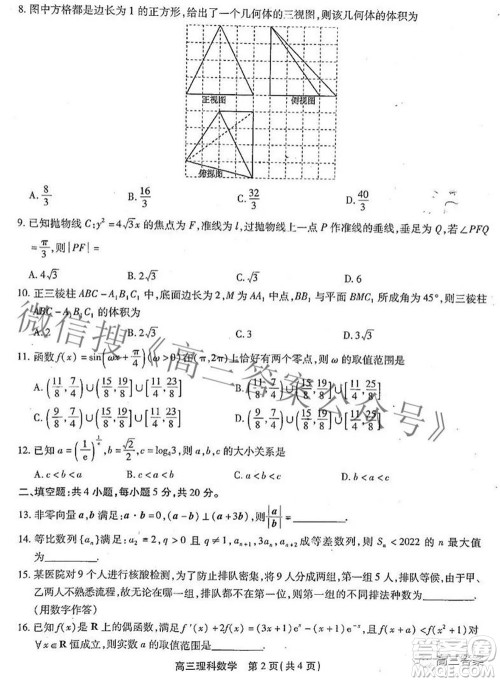 8. 图中方格都是边长为 1 的正方形,给出了一个几何体的三视图,则该几何体的体积为
正视图
侧视图
俯视图
A. 8/3 B. 16/3 C. 32/3 D. 40/3
9. 已知抛物线 C:y²=4√3x 的焦点为 F,准线为 l,过抛物线上一点 P 作准线的垂线,垂足为 Q,若∠PFQ
=π/3,则|PF|=
A. 4√3 B. 2√3 C. √3 D. 6
10. 正三棱柱 ABC-A₁B₁C₁ 中,底面边长为 2,M 为 AA₁ 中点,BB₁ 与平面 BMC₁ 所成角为 45°,则三棱柱
ABC-A₁B₁C₁ 的体积为
A. 2 B. 2√3 C. 3 D. 3√3
11. 函数 f(x)=sin(ωx+π/4)(ω>0)在(π,2π)上恰好有两个零点,则 ω 的取值范围是
A. (11/8,7/4)∪(15/8,19/8]∪[11/4,23/8) B. (11/8,7/4)∪(15/8,19/8]∪[11/4,25/8)
C. (9/8,7/4)∪(15/8,19/8]∪[11/4,23/8) D. (9/8,7/4)∪(15/8,19/8]∪[11/4,25/8)
12. 已知 a=(1/e)^(1/e),b=√2/2,c=log₆3,则 a,b,c 的大小关系是
A. c<b<a B. c<a<b C. a<c<b D. a<b<c
二、填空题:共 4 小题,每小题 5 分,共 20 分。
13. 非零向量 a,b 满足:(a-b)⊥(a+3b),则|a/b|=
14. 等比数列{aₙ}满足:a₂=2,q>0,
成等差数列,则 Sₙ<2022 的 n 最大值
为
15. 某医院对 9 个人进行核酸检测,为了防止排队密集,将 9 人分成两组,第一组 5 人,排队待检,由于甲、
乙两人不熟悉流程,因此两人不能都排在首位,且两人不能同组,则一共有多少种排队方法
(用数字作答)
16. 已知 f(x)是 R 上的偶函数,
对
∀x∈R 恒成立,则实数 a 的取值范围是
高三理科数学 第 2 页(共 4 页)
微信搜《高三答案公众号》
高三答案